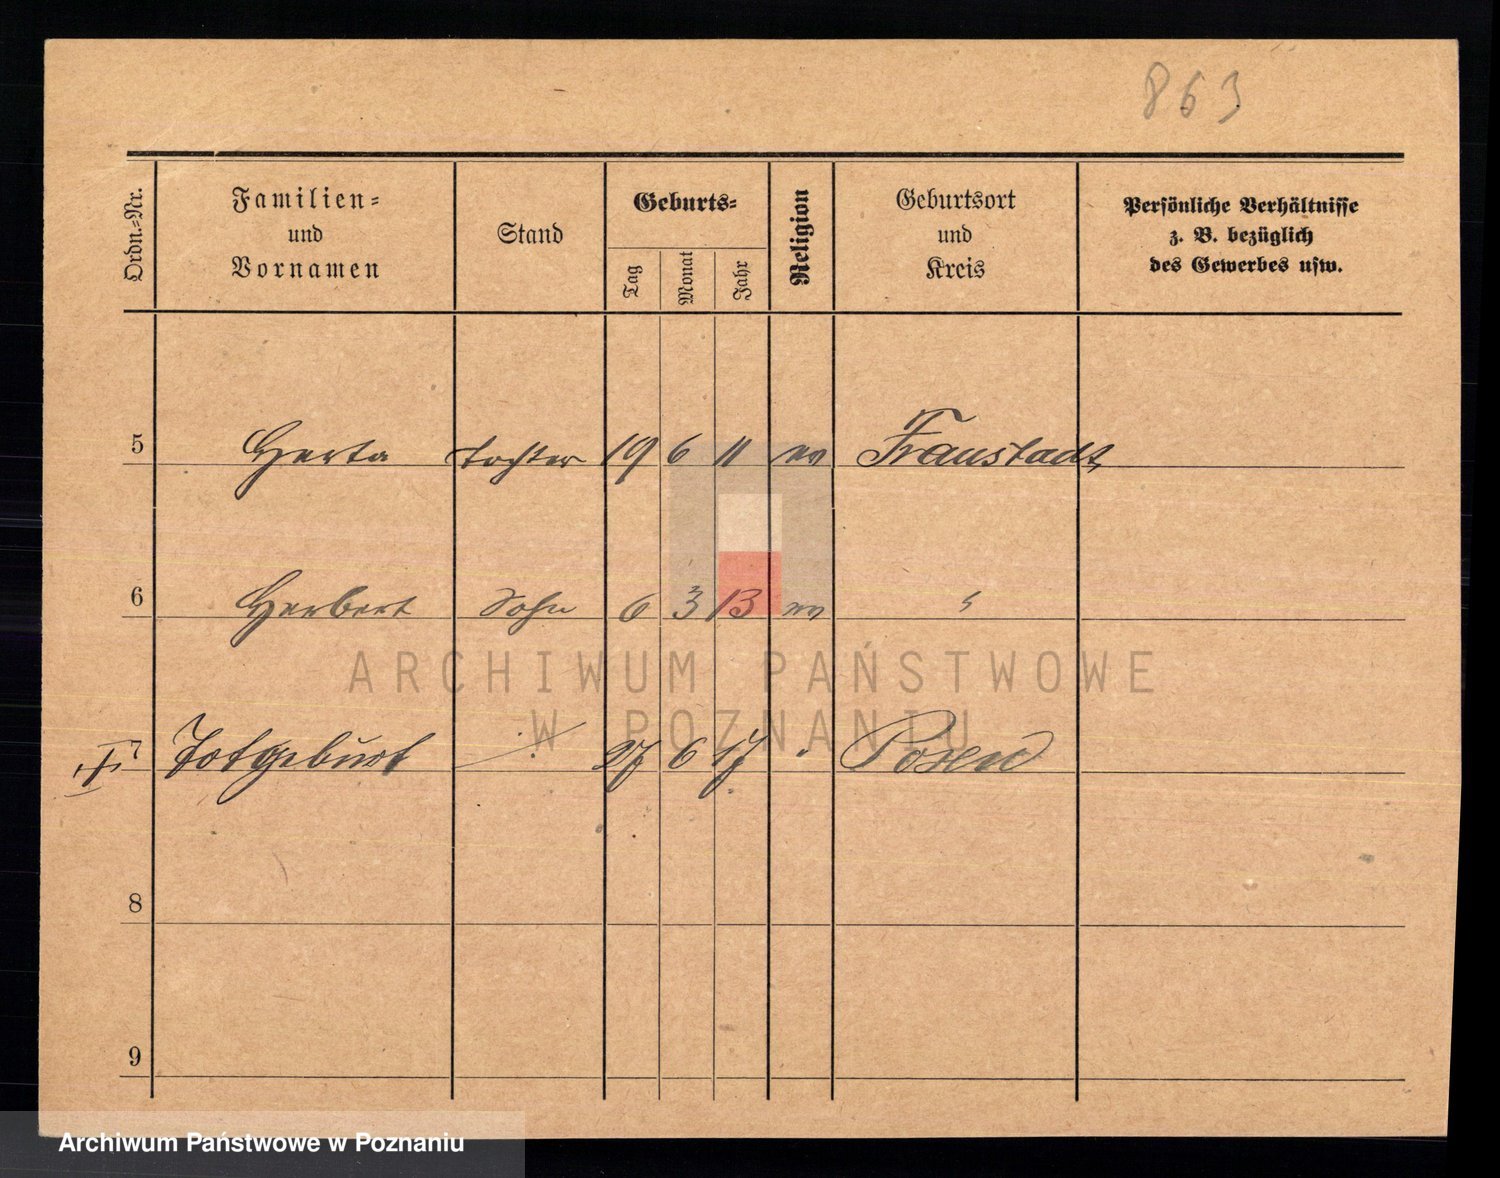 863
Ordn.-Nr.
Familien-
und
Vornamen
Stand
Geburts-
Tag
Monat
Jahr
Religion
Geburtsort
und
Kreis
Persönliche Verhältnisse
z. B. bezüglich
des Gewerbes usw.
5 Herta Tochter 19 6 11 ev Fraustadt
6 Herbert Sohn 6 3 13 ev "
ARCHIWUM PAŃSTWOWE
W POZNANIU
7 Totgeburt 27 6 17 Posen
8
9
Archiwum Państwowe w Poznaniu